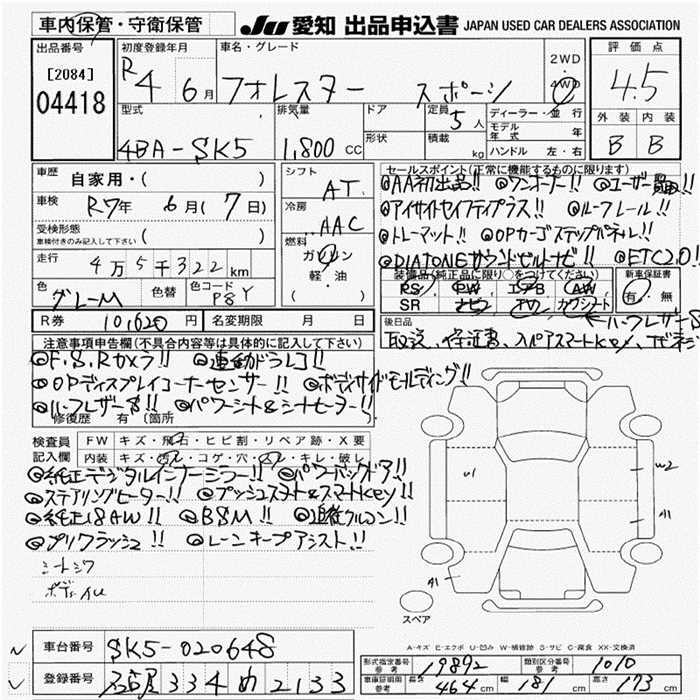 車内保管・守衛保管
JU 愛知 出品申込書 JAPAN USED CAR DEALERS ASSOCIATION
出品番号 [2084] 04418
初度登録年月 R4 6月
車名・グレード フォレスター スポーツ
2WD・4WD
評価点 4.5
外装 内装
B B
型式 4BA-SK5
排気量 1,800 cc
ドア 形状
定員 5人
積載 kg
ディーラー・並行
モデル年式 年
ハンドル 左・右
車歴 自家用・( )
車検 R7年 6月(7日)
受検形態 車検付きのみ記入して下さい ( )
走行 4万5千322km
色 グレーM 色替 色コード P8Y
シフト AT
冷房 AAC
燃料 ガソリン 軽・油 ( )
R券 10,620円 名変期限 月 日
セールスポイント(正常に機能するものに限ります)
◎AA初出品!! ◎ワンオーナー!! ◎ユーザー買取!!
◎アイサイトセイフティプラス!! ◎ルーフレール!!
◎トレーマット!! ◎OPカーゴステップパネル!!
◎DIATONEサウンドビルトナビ!! ◎ETC2.0!
装備品(純正品に限り○をつけてください) 新車保証書
PS PW エアB AW 有・無
SR ナビ TV カワシート
←ハーフレザーS
後日品
取説、保証書、スペアスマートkey、
注意事項申告欄(不具合内容等は具体的に記入して下さい)
◎F.S.Rカメラ!! ◎連動ドラレコ!!
◎OPディスプレイコーナーセンサー!! ◎ボディサイドモールディング!!
◎ハーフレザーS!! ◎パワーシート&シートヒーター!!
修復歴 有 (箇所
検査員記入欄 FW キズ・飛石・ヒビ割・リペア跡・X要
内装 キズ・汚レ・コゲ・穴・スレ・キレ・破レ
◎純正デジタルインナーミラー!! ◎パワーバックドア!!
◎ステアリングヒーター!! ◎プッシュスタート&スマートkey!!
◎純正18AW!! ◎BSM!! ◎追従クルコン!!
◎プリクラッシュ!! ◎レーンキープアシスト!!
シートシワ
U1
W2
A1
A1
スペア
A-キズ E-エクボ U-凹み W-補修跡 S-サビ C-腐食 XX-交換済
車台番号 SK5-020648
登録番号 名古屋 334 め 2133
型式指定番号 参考 19892 類別区分番号 参考 1010
車庫証明用 参考 長さ 464cm 幅 181cm 高さ 173cm